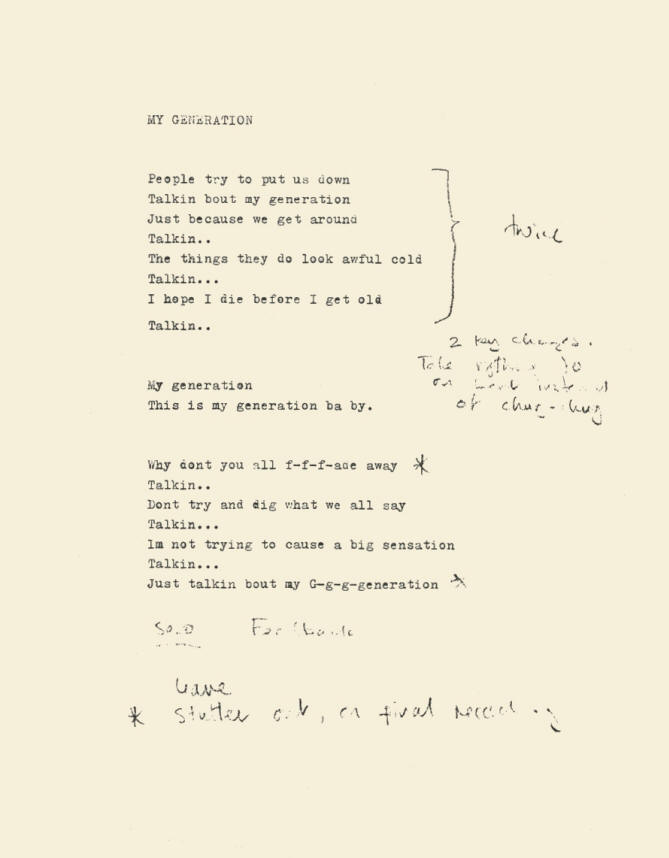 MY GENERATION
People try to put us down
Talkin bout my generation
Just because we get around
Talkin..
twice
The things they do look awful cold
Talkin...
I hope I die before I get old
Talkin..
2 key changes.
Take
on instead
of chug-chug
My generation
This is my generation ba by.
Why dont you all f-f-f-ade away *
Talkin..
Dont try and dig what we all say
Talkin...
Im not trying to cause a big sensation
Talkin...
Just talkin bout my G-g-g-generation *
Solo Feedback
Leave
* Stutter out, on final recording